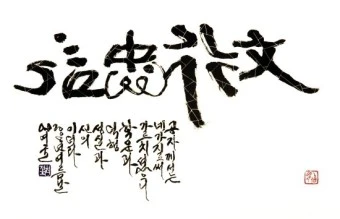 文行忠信
공자께서는
네가지로써
가르치셨으니
학문과
덕행
성실과
신의
이었다